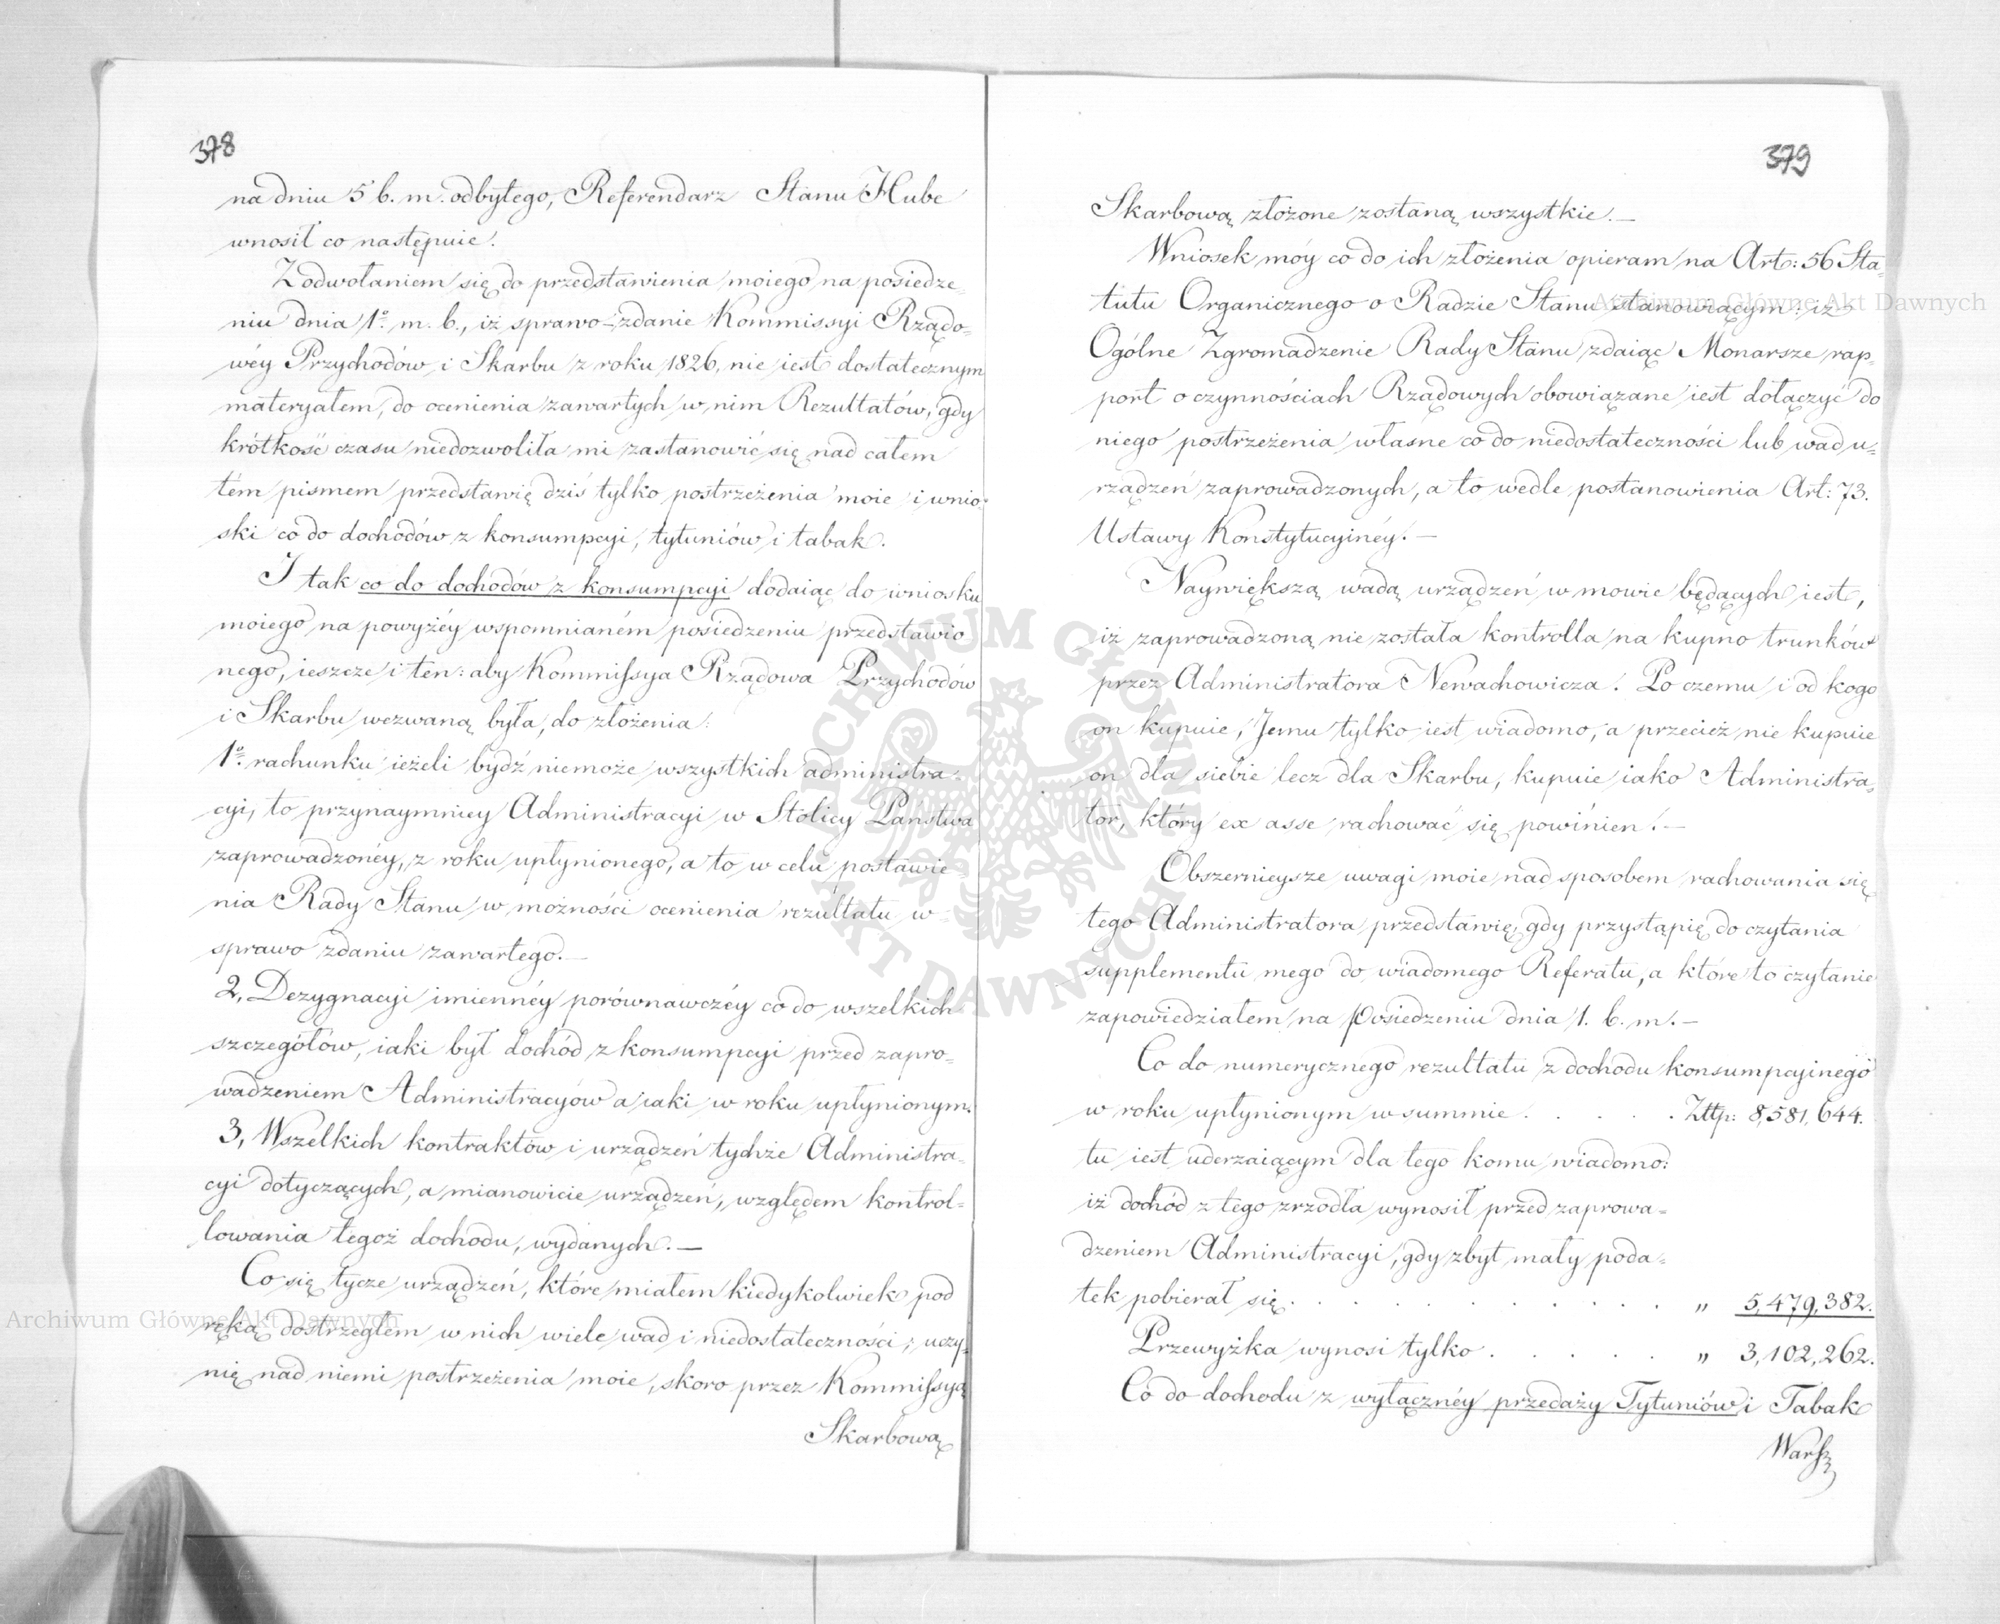 378
na dniu 5 b. m. odbytego, Referendarz Stanu Hube
wnosił co następuie.
Z odwołaniem się do przedstawienia moiego na posiedze-
niu dnia 1º m. b., iż sprawo-zdanie Kommissyi Rządo-
wéy Przychodów i Skarbu z roku 1826, nie iest dostatecznym
materyałem, do ocenienia zawartych w nim Rezultatów, gdy
krótkość czasu niedozwoliła mi zastanowić się nad całem
tém pismem przedstawię dziś tylko postrzeżenia moie i wnio-
ski co do dochodów z konsumpcyi, tytuniów i tabak.
I tak co do dochodów z konsumpcyi dodaiąc do wniosku
moiego na powyżéy wspomnianém posiedzeniu przedstawio
nego, ieszcze i ten: aby Kommissya Rządowa Przychodów
i Skarbu wezwaną była, do złożenia:
1º rachunku ieżeli bydź niemoże wszystkich administra-
cyi, to przynaymniey Administracyi w Stolicy Państwa
zaprowadzonéy, z roku upłynionego, a to w celu postawie-
nia Rady Stanu w możności ocenienia rezultatu w-
sprawo zdaniu zawartego.—
2, Dezygnacyi imiennéy porównawczéy co do wszelkich
szczegółów, iaki był dochód z konsumpcyi przed zapro-
wadzeniem Administracyów a iaki w roku upłynionym.
3, Wszelkich kontraktów i urządzeń tychże Administra-
cyi dotyczących, a mianowicie urządzeń, względem kontrol-
lowania tegoż dochodu, wydanych.—
Co się tycze urządzeń, które miałem kiedykolwiek pod
ręką dostrzegłem w nich wiele wad i niedostateczności; uczy-
nię nad niemi postrzeżenia moie, skoro przez Kommissyą
Skarbową
379
Skarbową złożone zostaną wszystkie.—
Wniosek móy co do ich złożenia opieram na Art: 56 Sta-
tutu Organicznego o Radzie Stanu stanowiącym: iż
Ogólne Zgromadzenie Rady Stanu zdaiąc Monarsze rap-
port o czynnościach Rządowych obowiązane iest dołączyć do
niego postrzeżenia własne co do niedostateczności lub wad u-
rządzeń zaprowadzonych, a to wedle postanowienia Art: 73.
Ustawy Konstytucyinéy.—
Naywiększą wadą urządzeń w mowie będących iest,
iż zaprowadzoną nie została kontrolla na kupno trunków
przez Administratora Newachowicza. Po czemu i od kogo
on kupuie, Jemu tylko iest wiadomo, a przecież nie kupuie
on dla siebie lecz dla Skarbu, kupuie iako Administra-
tor, który ex asse rachować się powinien.—
Obszernieysze uwagi moie nad sposobem rachowania się
tego Administratora przedstawię, gdy przystąpię do czytania
supplementu mego do wiadomego Referatu, a które to czytanie
zapowiedziałem na Posiedzeniu dnia 1. b. m.—
Co do numerycznego rezultatu z dochodu konsumpcyinego
w roku upłynionym w summie . . . . . Złtp: 8,581,644.
tu iest uderzaiącym dla tego komu wiadomo:
iż dochód z tego zrzódła wynosił przed zaprowa-
dzeniem Administracyi, gdy zbyt mały poda-
tek pobierał się . . . . . . . . . . . . „ 5,479,382.
Przewyżka wynosi tylko . . . . . „ 3,102,262.
Co do dochodu z wyłącznéy przedaży Tytuniów i Tabak
Warsz
Archiwum Główne Akt Dawnych
Archiwum Główne Akt Dawnych
ARCHIWUM GŁÓWNE
AKT DAWNYCH